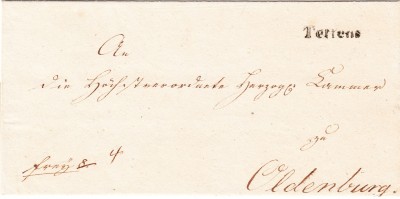 Tettens
An
die Höchstverordnete Herzogl. Kammer
zu
Oldenburg.
frey